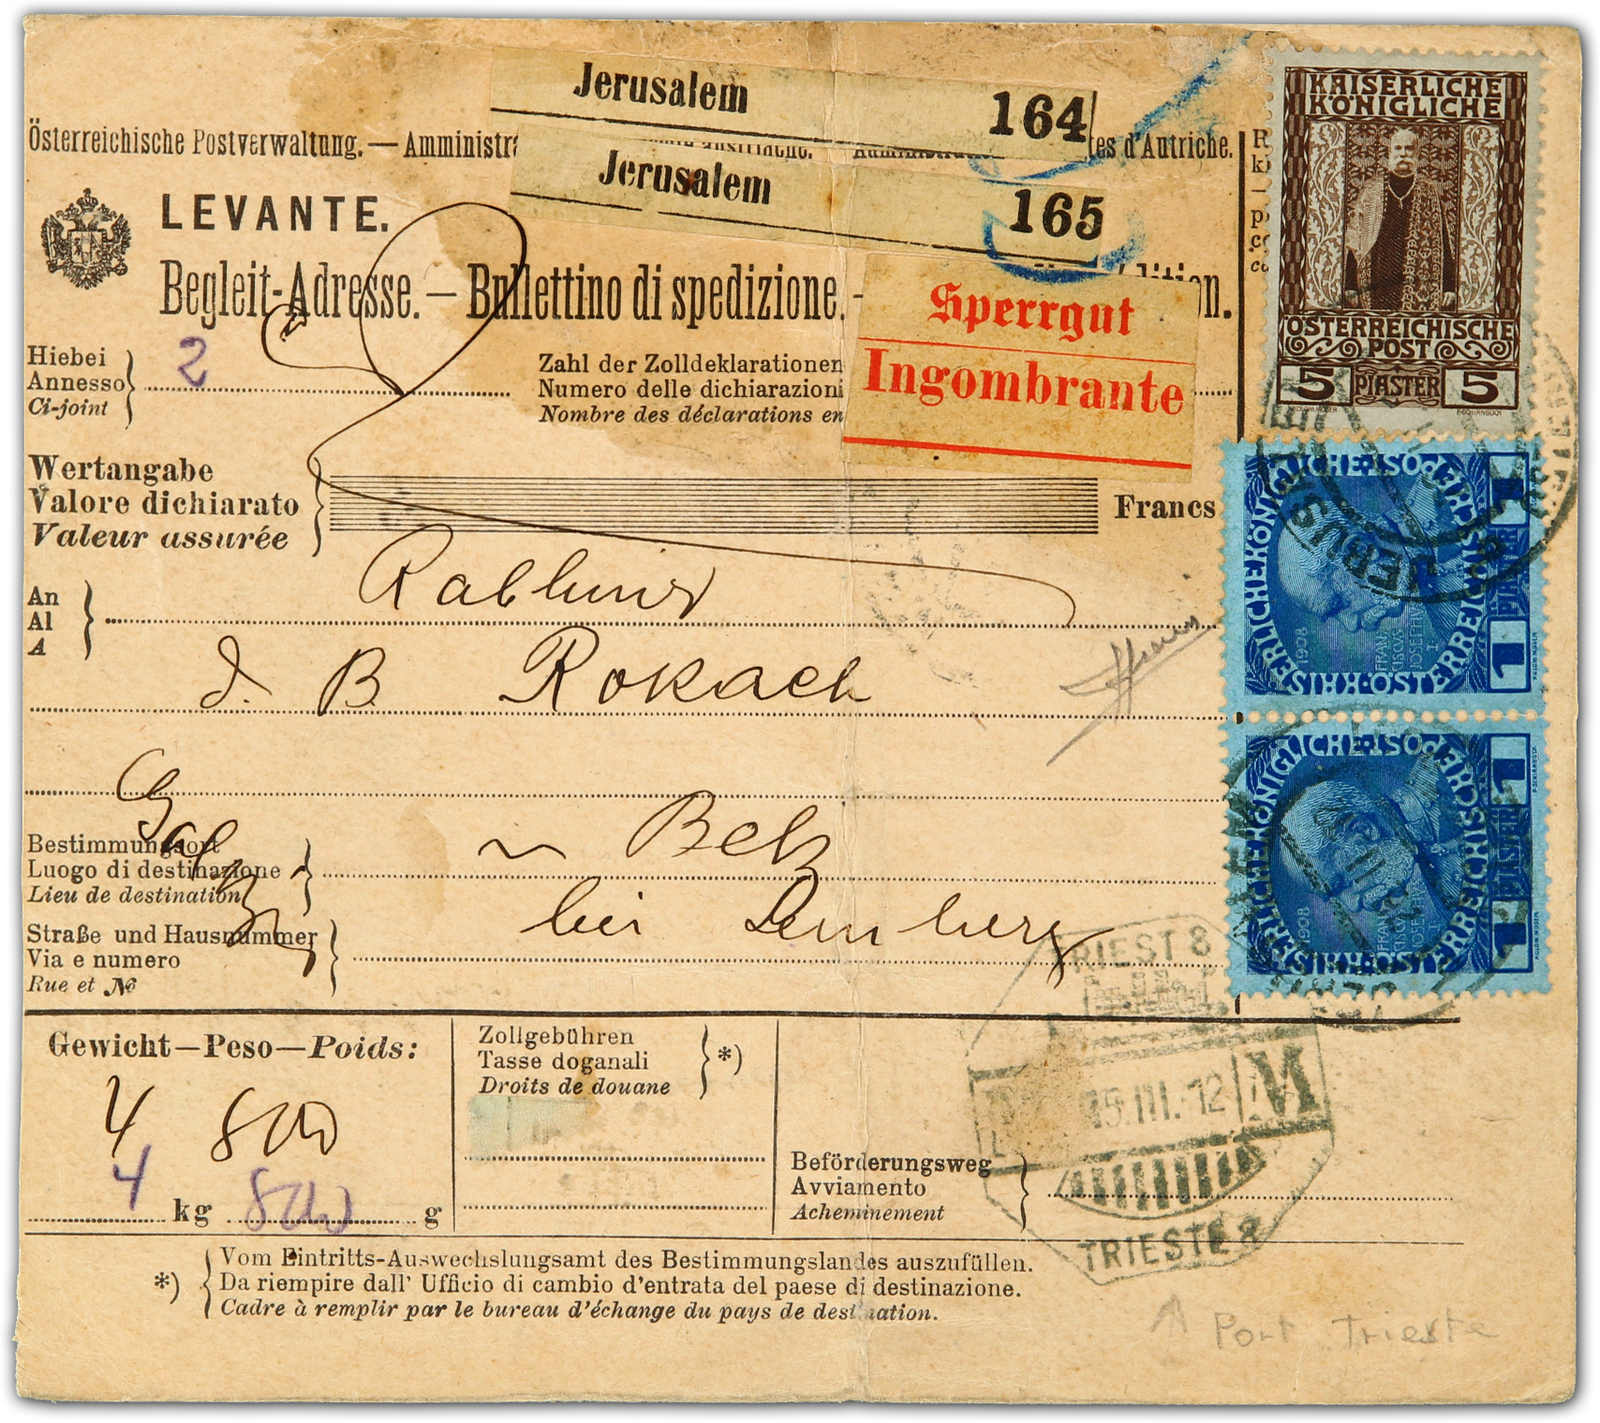 Jerusalem 164
Jerusalem 165
Österreichische Postverwaltung. — Amministr tes d'Autriche.
LEVANTE.
Begleit-Adresse. — Bullettino di spedizione. - dition.
Sperrgut
Ingombrante
Hiebei
Annesso
Ci-joint
2
Zahl der Zolldeklarationen
Numero delle dichiarazioni
Nombre des déclarations en
Wertangabe
Valore dichiarato
Valeur assurée
Francs
An
Al
A
Rabbiner
d. B. Rokach
Galizien
Bestimmungsort
Luogo di destinazione
Lieu de destination
Belz
Straße und Hausnummer
Via e numero
Rue et №
bei Lemberg
Gewicht—Peso—Poids:
4 800
4 kg 800 g
Zollgebühren
Tasse doganali
Droits de douane
*)
Beförderungsweg
Avviamento
Acheminement
*) Vom Eintritts-Auswechslungsamt des Bestimmungslandes auszufüllen.
Da riempire dall' Ufficio di cambio d'entrata del paese di destinazione.
Cadre à remplir par le bureau d'échange du pays de destination.
KAISERLICHE
KÖNIGLICHE
ÖSTERREICHISCHE
POST
5 PIASTER 5
KAISERLICHE KÖNIGLICHE ÖSTERREICHISCHE POST
1908
FRANCISCUS JOSEPH I
1 PIASTER 1
KAISERLICHE KÖNIGLICHE ÖSTERREICHISCHE POST
1908
1 PIASTER 1
JERUSALEM
TRIEST 8
15.III.12 M
TRIESTE 8
Port Trieste